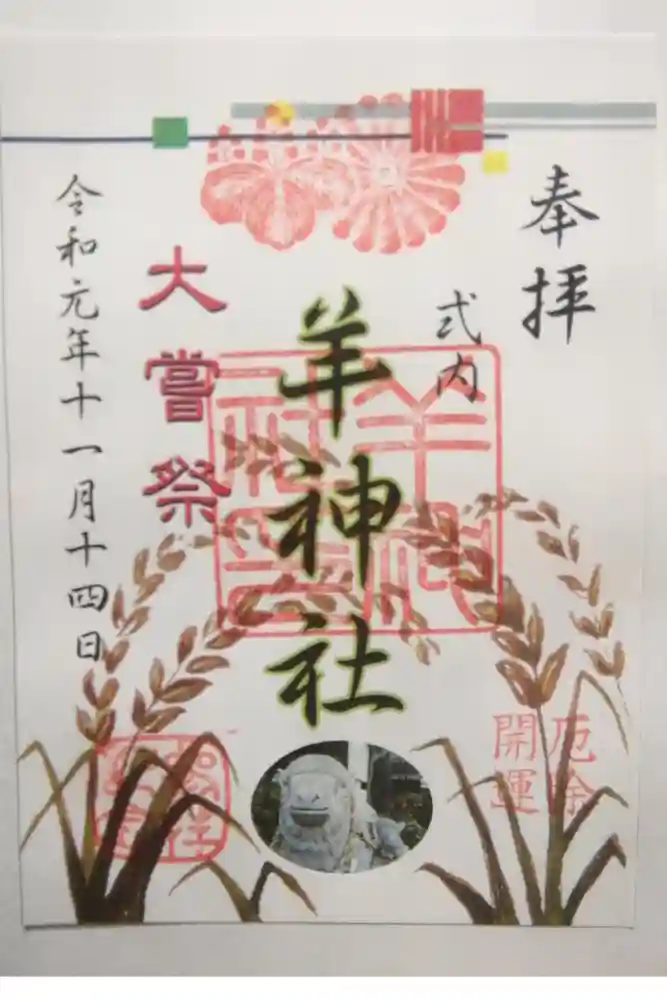 奉拝
式内
羊神社
大嘗祭
令和元年十一月十四日
厄除
開運